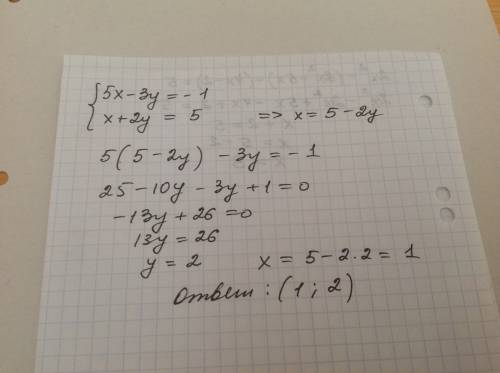 {5x-3y=-1
x+2y = 5 => x=5-2y
5(5-2y) -3y=-1
25-10y-3y+1=0
-13y+26=0
13y=26
y=2 x = 5-2·2=1
Ответ: (1; 2)